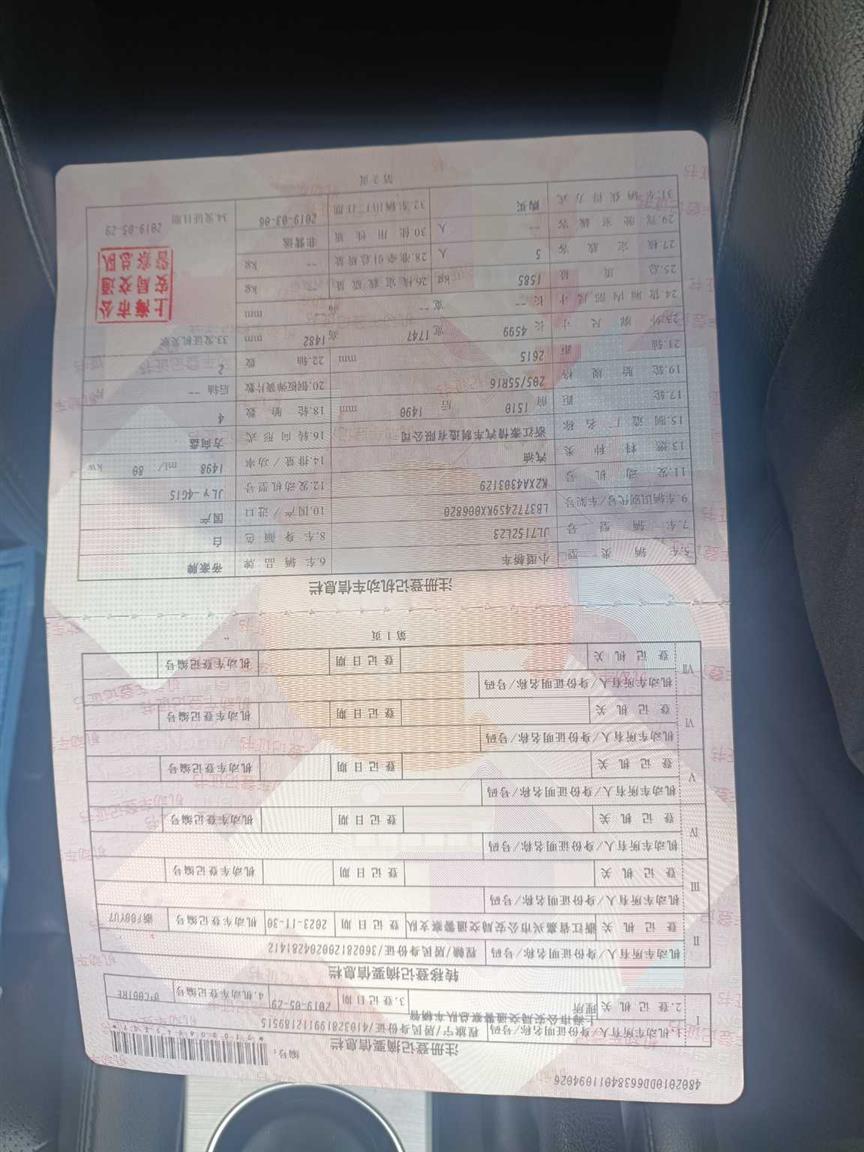 注册登记摘要信息栏 编号:
I 1.机动车所有人/身份证明名称/号码 /居民身份证/
2.登记机关 上海市公安局交通警察总队车辆管理所 3.登记日期 2019-05-29 4.机动车登记编号
转移登记摘要信息栏
II 机动车所有人/身份证明名称/号码 程赣/居民身份证/360281200204281412
登记机关 浙江省嘉兴市公安局交通警察支队 登记日期 2023-11-30 机动车登记编号 浙F00YU7
III 机动车所有人/身份证明名称/号码
登记机关 登记日期 机动车登记编号
IV 机动车所有人/身份证明名称/号码
登记机关 登记日期 机动车登记编号
V 机动车所有人/身份证明名称/号码
登记机关 登记日期 机动车登记编号
VI 机动车所有人/身份证明名称/号码
登记机关 登记日期 机动车登记编号
VII 机动车所有人/身份证明名称/号码
登记机关 登记日期 机动车登记编号
第1页
注册登记机动车信息栏
5.车辆类型 小型轿车 6.车辆品牌 帝豪牌
7.车辆型号 JL7152L23 8.车身颜色 白
9.车辆识别代号/车架号 LB37724S9KX006820 10.国产/进口 国产
11.发动机号 K2XA4303129 12.发动机型号 JLγ-4G15
13.燃料种类 汽油 14.排量/功率 1498 ml/ 80 kw
15.制造厂名称 浙江豪情汽车制造有限公司 16.转向形式 方向盘
17.轮距 前 1510 后 1490 mm 18.轮胎数 4
19.轮胎规格 205/55R16 20.钢板弹簧片数 后轴 --
21.轴距 2615 mm 22.轴数 2
23.外廓尺寸 长 4599 宽 1747 高 1482 mm 33.发证机关章
24.货厢内部尺寸 长 -- 宽 -- 高 mm
25.总质量 1585 kg 26.核定载质量 kg
27.核定载客 5 人 28.准牵引总质量 -- kg
29.驾驶室载客 -- 人 30.使用性质 非营运
31.车辆获得方式 购买 32.车辆出厂日期 2019-03-06 34.发证日期 2019-05-29
上海市公
安局交通
警察总队
第2页